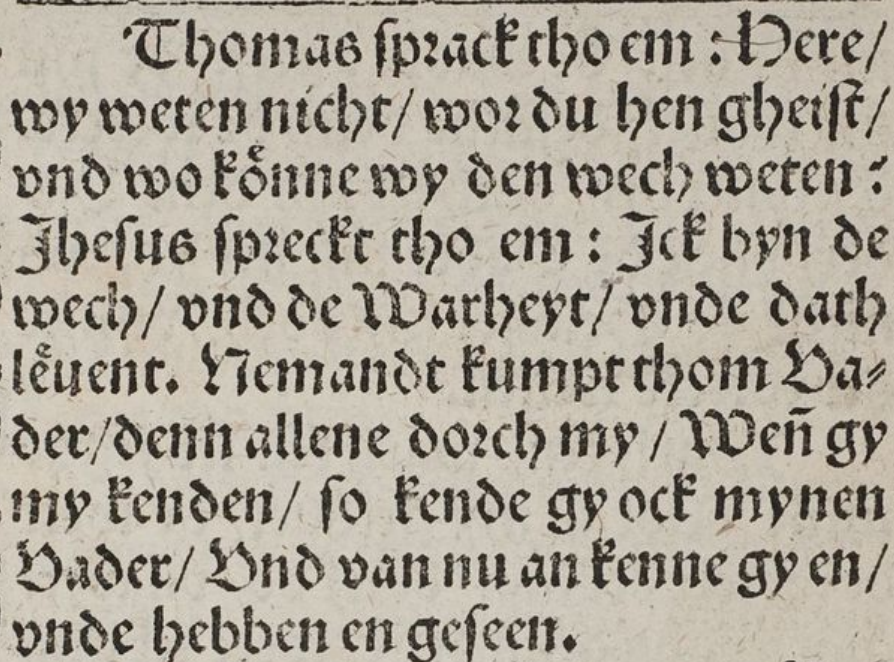 Thomas ſprack tho em : Here/
wy weten nicht/ wor du hen gheiſt/
vnd wo koͤnne wy den wech weten :
Jheſus ſpreckt tho em : Jck byn de
wech/ vnd de Warheyt/ vnde dath
leͤuent. Nemandt kumpt thom Va⸗
der/denn allene dorch my / Wen̄ gy
my kenden/ ſo kende gy ock mynen
Vader/ Vnd van nu an kenne gy en/
vnde hebben en geſeen.